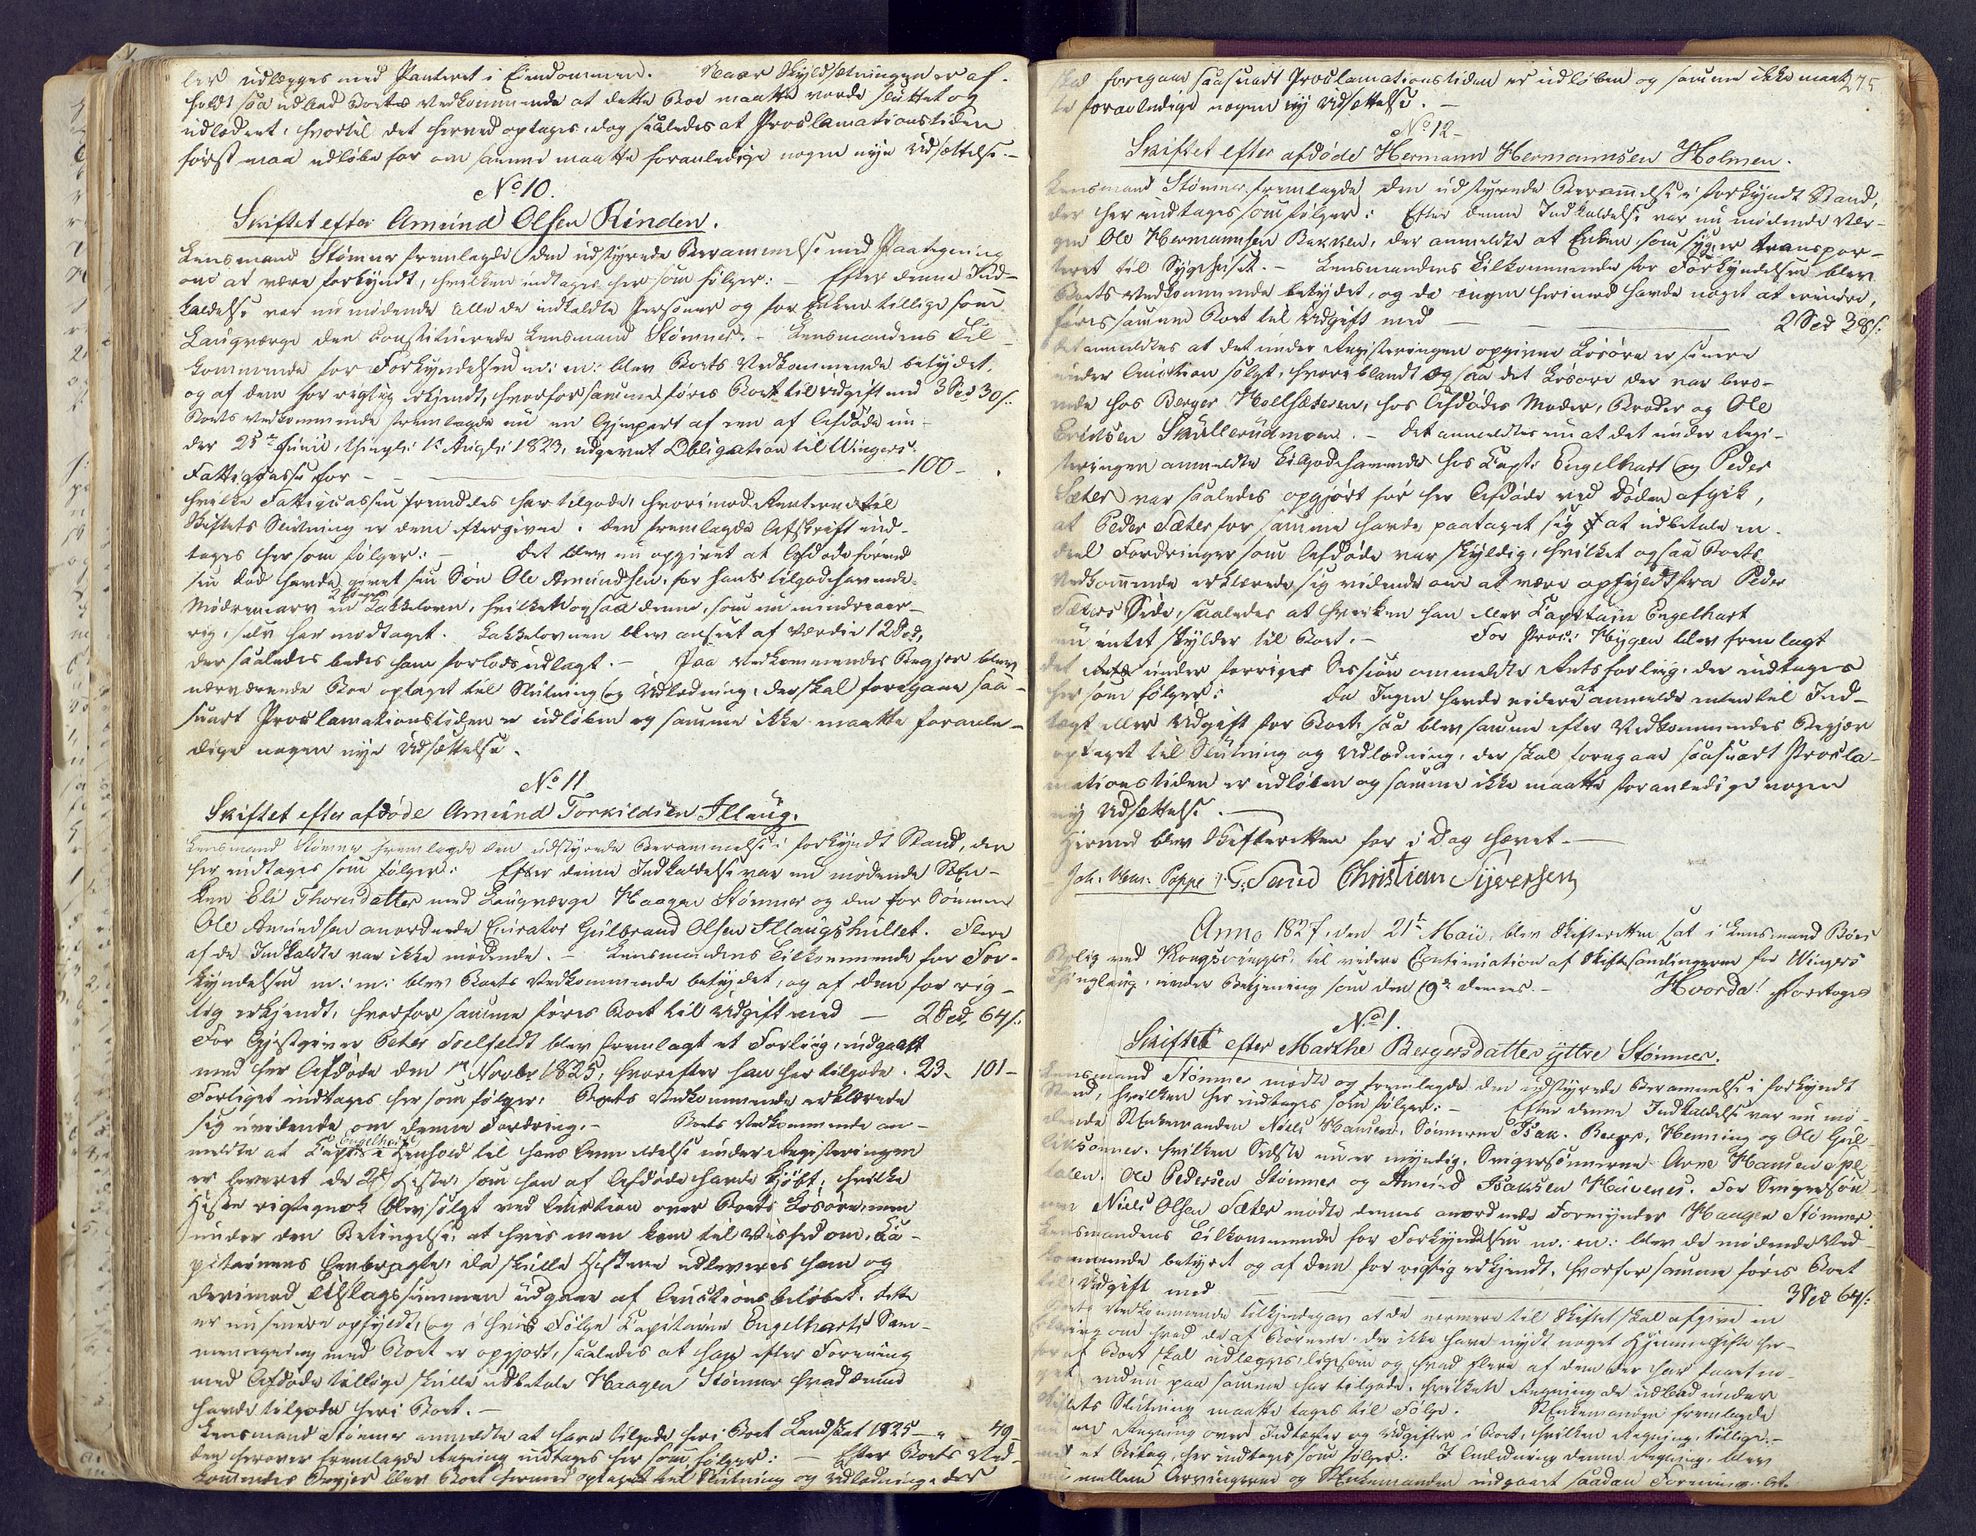 ler udlægges med Panteret i Eiendommen. Naar Skyldsætningen er af-
holdt saa udbad Boets Vedkommende at dette Boe maatte vorde sluttet og
udloddet, hvortil det herved optages, dog saaledes at Proclamationstiden
først maa udløbe for om samme maatte foranledige nogen nye Udsættelse. -
No 10.
Skiftet efter Amund Olsen Rinden.
Lensmand Stømner fremlagde den udstyrede Berammelse med Paategning
om at være forkyndt, hvilken indtages her som følger: - Efter denne Ind-
kaldelse var nu mødende alle de indkaldte Personer og for Enken tillige som
Laugværge den constituerede Lensmand Stømner. - Lensmandens Til-
kommende for Forkyndelsen m: m: blev Boets Vedkommende betydet,
og af dem for rigtig erkjendt, hvorfor samme føres Boet til Udgift med 3 Spd 30 s:
Boets Vedkommende fremlagde nu en Gjenpart af en af Afdøde un-
der 25de Junii, thingl: 1 Augs: 1823, udgivet Obligation til Wingers
Fattigcasse for - 100 -
hvilke Fattigcassen fremdeles har tilgode, hvorimod Renterne til
Skiftets Slutning er dem eftergivne. Den fremlagde Afskrift ind-
tages her som følger: - Det blev nu opgivet at Afdøde førend
sin Død havde givet sin Søn Ole Amundsen, for hans tilgodehavende
Mødrenearv en 2 Etages Kakkelovn, hvilket ogsaa denne, som nu mindreaar-
rig, selv har modtaget. Kakkelovnen blev anseet af Værdie 12 Spd,
der saaledes bedes ham forlods udlagt. - Paa Vedkommendes Begjær blev
nærværende Boe optaget til Slutning og Udlodning, der skal foregaae saa-
snart Proclamationstiden er udløben og samme ikke maatte foranle-
dige nogen nye Udsættelse.
No 11
Skiftet efter afdøde Amund Torkildsen Illaug.
Lensmand Stømner fremlagde den udstyrede Berammelse i forkyndt Stand, der
her indtages som følger: Efter denne Indkaldelse var nu mødende En-
ken Eli Thoresdatter med Laugværge Haagen Stømner og den for Sønnen
Ole Amundsen anordnede Curator Gulbrand Olsen Illaugshullet. Flere
af de Indkaldte var ikke mødende. - Lensmandens Tilkommende for For-
kyndelsen m: m: blev Boets Vedkommende betydet, og af dem for rig-
tig erkjendt, hvorfor samme føres Boet til Udgift med - 2 Spd, 64 s:
For Gjestgiver Peter blev fremlagt et Forliig, indgaaet
med her Afdøde den Novbr 1825, hvorefter han har tilgode. 23. 101 -
Forliget indtages her som følger: Boets Vedkommende erklærede
sig uvidende om denne Fordring. - Boets Vedkommende an-
meldte at Capt: Engelhart i Henhold til hans Anmeldelse under Registeringen
er leveret de 2de Heste, som han af Afdøde havde kjøbt, hvilke
Heste rigtignok blev solgt ved Auction over Boets Løsøre, men
under den Betingelse, at hvis man kom til Vished om, Ca-
pitainens Eenberagte, da skulle Hestene udleveres ham og
derimod Tilslagssummen udgaae af Auctionsbeløbet. Dette
er nu senere opfyldt, og i hvis Følge Capitaine Engelharts Sam-
menregning med Boet er opgjort, saaledes at han efter Forening
med Afdøde tillige skulle udbetale Haagen Stømner hvad denne
havde tilgode her i Boet. -
Lensmand Stømner anmeldte at have tilgode her i Boet Landskat 1825 - " - 49 -
den herover fremlagde Regning indtages her som følger: - Efter Boets Ved-
kommendes Begjær blev Boet hermed optaget til Slutning og Udlodning, der
275
skal foregaae saasnart Proclamationstiden er udløben og samme ikke maat-
te foranledige nogen ny Udsættelse. -
No 12 -
Skiftet efter afdøde Hermann Hermannsen Holmen.
Lensmand Stømner fremlagde den udstyrede Berammelse i forkyndt Stand,
der her indtages som følger: Efter denne Indkaldelse var nu mødende Vær-
gen Ole Hermannsen Bakken, der anmeldte at Enken som syg er transpor-
teret til Sygehuset. - Lensmandens Tilkommende for Forkyndelsen blev
Boets Vedkommende betydet, og da ingen herimod havde noget at erindre,
føres samme Boet til Udgift med - 2 Spd 38 s:
Det anmeldtes at det under Registeringen opgivne Løsøre er senere
under Auction solgt, hvoriblandt og saa det Løsøre der var bero-
ende hos Berger Holtsæteren, hos Afdødes Moder, Broder og Ole
Erichsen Skullerudmoen. - Det anmeldtes nu at det under Regi-
steringen anmeldte Tilgodehavende hos Capt: Engelhart og Peder
Sæter var saaledes opgjort før her Afdøde ved Døden afgik,
at Peder Sæter for samme havde paataget sig at udbetale en
deel Fordringer som Afdøde var skyldig, hvilket ogsaa Boets
Vedkommende erklærede sig vidende om at være opfyldt fra Peder
Sæters Side, saaledes at hverken han eller Capitain Engelhart
nu intet skylder til Boet. - For Proc: Hygen blev fremlagt
det under forrige Session anmeldte Retsforliig, der indtages
her som følger: Da Ingen havde videre at anmelde enten til Ind-
tægt eller Udgift for Boet, saa blev samme efter Vedkommendes Begjær
optaget til Slutning og Udlodning, der skal foregaae saasnart Procla-
mationstiden er udløben og samme ikke maatte foranledige nogen
ny Udsættelse. -
Hermed blev Skifteretten for i Dag hævet. -
Joh: Poppe G: Christian Syversen
Anno 1827, den 21de Maii, blev Skifteretten sat i Lensmand Boes
Bolig ved Kongsvinger, til videre Continuation af Skiftesamlingerne for Wingers
Thinglaug, under Betjening som den 19de dennes. - Hvorda! foretoges
No 1.
Skiftet efter Marthe Bergersdatter yttre Stømner.
Lensmand Stømner mødte og fremlagde den udstyrede Berammelse i forkyndt
Stand, hvilken her indtages som følger: - Efter denne Indkaldelse var nu mø-
dende Enkemanden Niels Hansen, Sønnerne Isak, Berger, Henning og Ole
hvilken Sidste nu er myndig, Svigersønnerne Arne Hansen
Ole Pedersen Stømner og Amund Isaksen Huvenes. For Svigersøn-
nen Niels Olsen Sæter mødte dennes anordnede Formynder Haagen Stømner.
Lensmandens Tilkommende for Forkyndelsen m: m: blev de mødende Ved-
kommende betydet og af dem for rigtig erkjendt, hvorfor samme føres Boet
til Udgift med - 3 Spd 64 s:
Boets Vedkommende tilkjendegav at de nærmere til Skiftet skal afgive en
om hvad de af Børnene der ikke have nydt noget Hjemmegifte her-
for af Boet skal udlægges, ligesom og hvad flere af dem der har faaet no-
get, endnu paa samme har tilgode, hvilken Regning de udbad under
Skiftets Slutning maatte tages til Følge. Enkemanden fremlagde
nu en Regning over Indtægter og Udgifter i Boet, hvilken Regning, tillige
med et Bilag, her indtages som følger: I Anledning denne Regning, blev
nu mellem Arvingerne og Enkemanden indgaaet saadan Forening: at